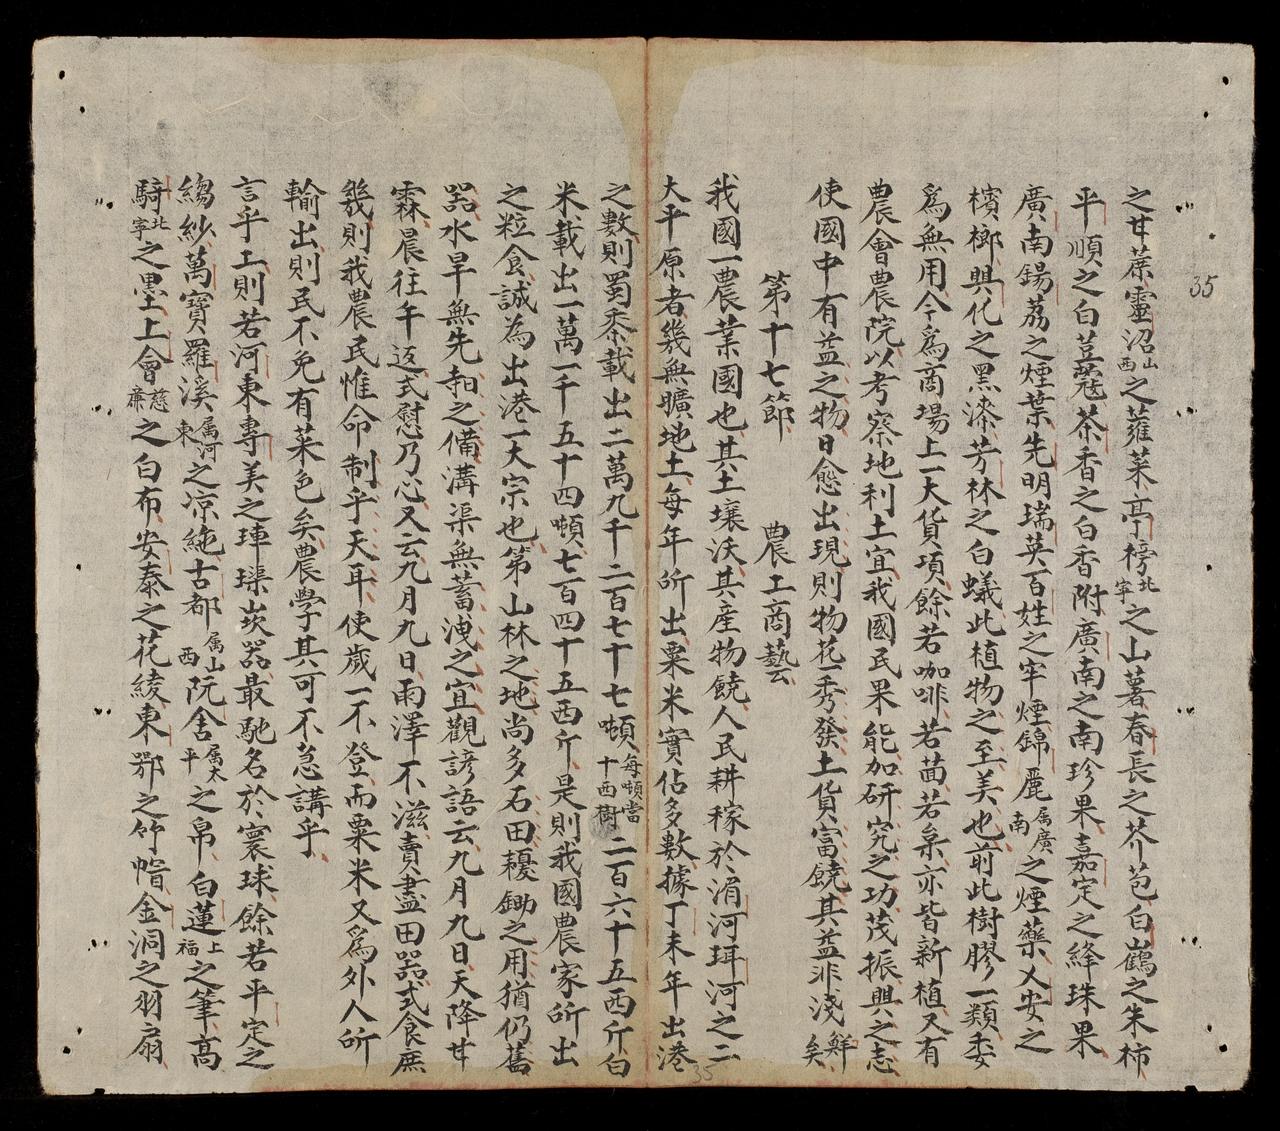 35
之甘蔗靈沼山西之蕹菜亭榜北寧之山薯春長之芥苞白鶴之朱柿
平順之白荳蔻茶香之白香附廣南之南珍果嘉定之絳珠果
廣南錫荔之煙葉先明瑞英百姓之牢煙錦麗属廣南之煙藥乂安之
檳榔興化之黑漆芳林之白蟻此植物之至美也前此樹膠一類委
爲無用今爲商場上一大貨項餘若咖啡若茴若㭉亦皆新植又有
農會農院以考察地利土宜我國民果能加研究之功茂振興之志
使國中有益之物日愈出現則物花一秀發土貨富饒其益非淺鮮矣
第十七節 農工商藝
我國一農業國也其土壤沃其產物饒人民耕稼於湄河珥河之二
大平原者幾無曠地土每年所出粟米實佔多數據丁未年出港
之數則蜀黍載出二萬九千二百七十七噸每噸當十西樹二百六十五西斤白
米載出一萬一千五十四噸七百四十五西斤是則我國農家所出
之粒食誠為出港一大宗也第山林之地尚多石田耰鋤之用猶仍舊
器水旱無先知之備溝渠無蓄洩之宜觀諺語云九月九日天降甘
霖晨往午返式慰乃心又云九月九日雨澤不滋賣盡田器式食庶
幾則我農民惟命制乎天耳使歲一不登而粟米又爲外人所
輸出則民不免有菜色矣農學其可不急講乎
言乎工則若河東專美之硨璖嵌器最馳名於寰球餘若平定之
縐紗萬寶羅溪属河東之凉絁古都属山西阮舍属太平之帛白蓮上福之筆高
騎北寧之墨上會慈廉之白布安泰之花綾東鄂之竹帽金洞之羽扇
35